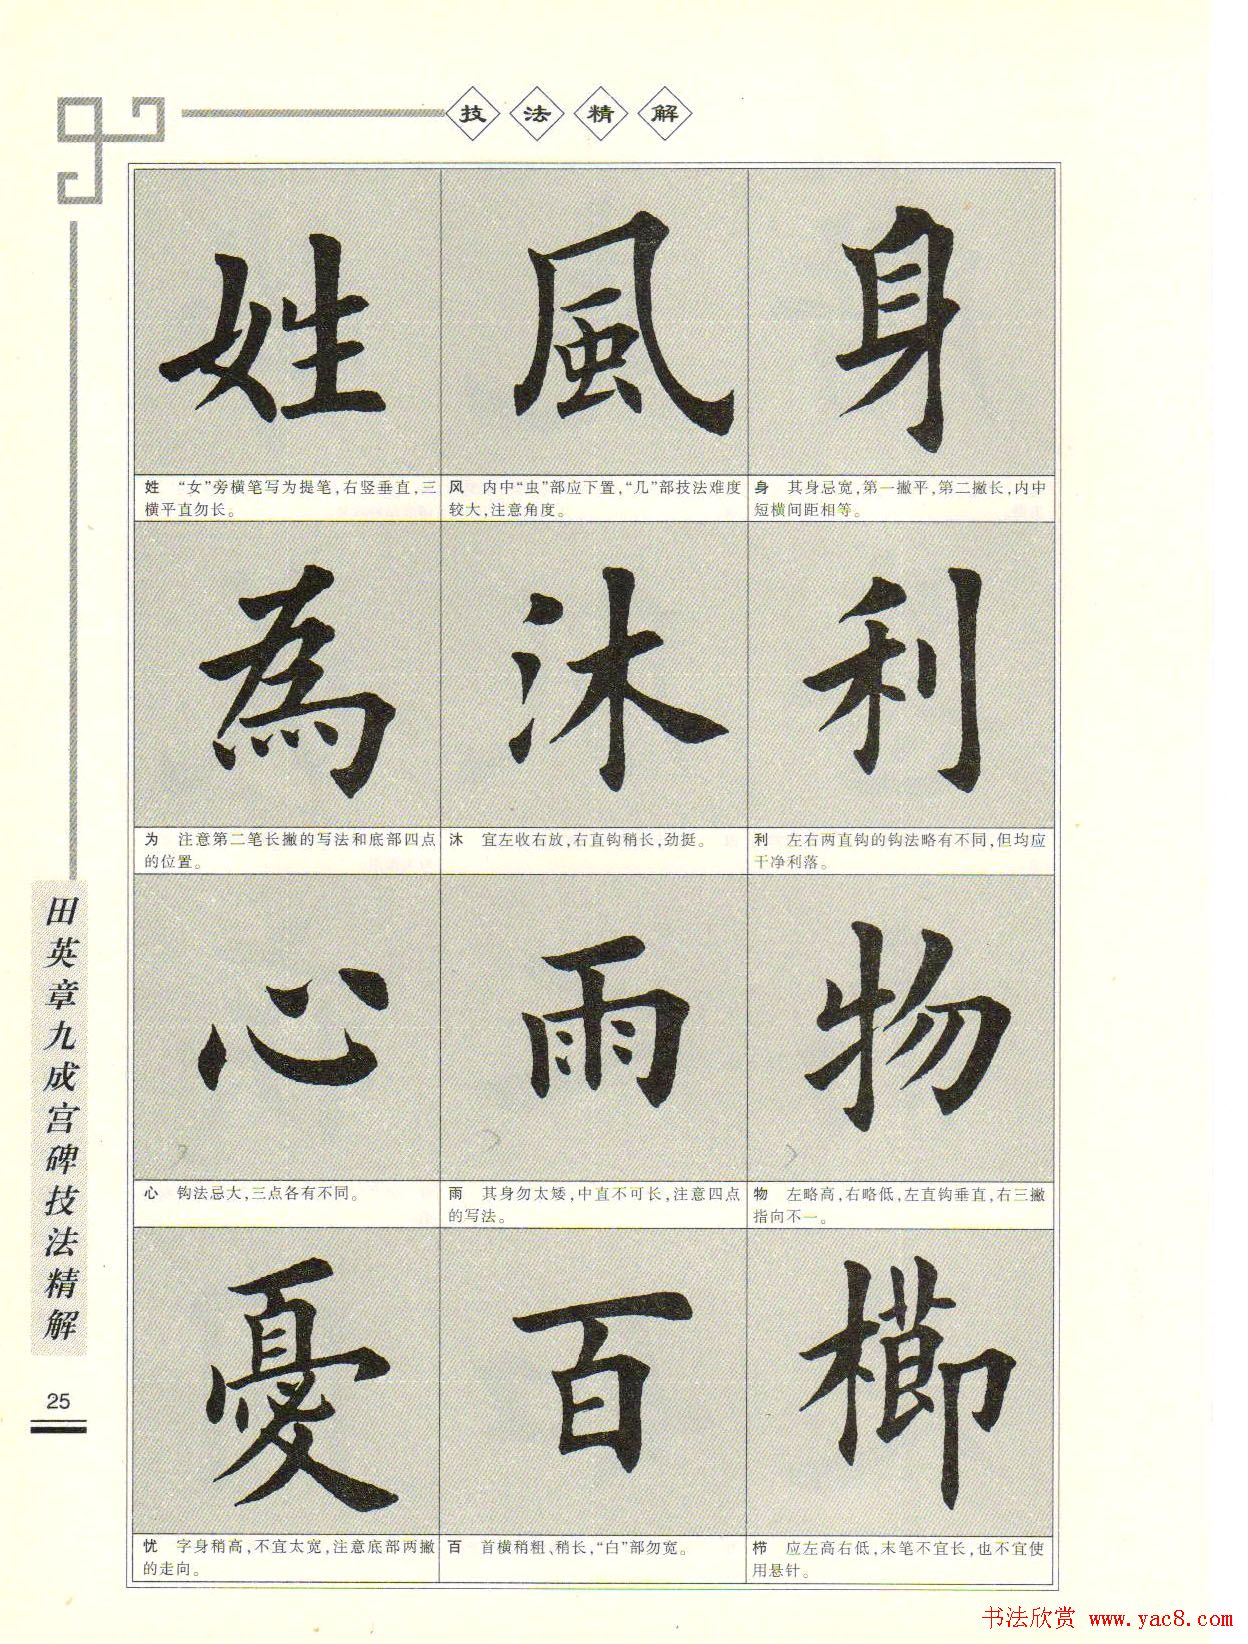 技法精解
姓 風 身
姓 “女”旁横笔写为提笔，右竖垂直，三
横平直勿长。
风 内中“虫”部应下置，“几”部技法难度
较大，注意角度。
身 其身忌宽，第一撇平，第二撇长，内中
短横间距相等。
為 沐 利
为 注意第二笔长撇的写法和底部四点
的位置。
沐 宜左收右放，右直钩稍长，劲挺。
利 左右两直钩的钩法略有不同，但均应
干净利落。
心 雨 物
心 钩法忌大，三点各有不同。
雨 其身勿太矮，中直不可长，注意四点
的写法。
物 左略高，右略低，左直钩垂直，右三撇
指向不一。
憂 百 櫛
忧 字身稍高，不宜太宽，注意底部两撇
的走向。
百 首横稍粗、稍长，“白”部勿宽。
栉 应左高右低，末笔不宜长，也不宜使
用悬针。
田英章九成宫碑技法精解
25
书法欣赏 www.yac8.com